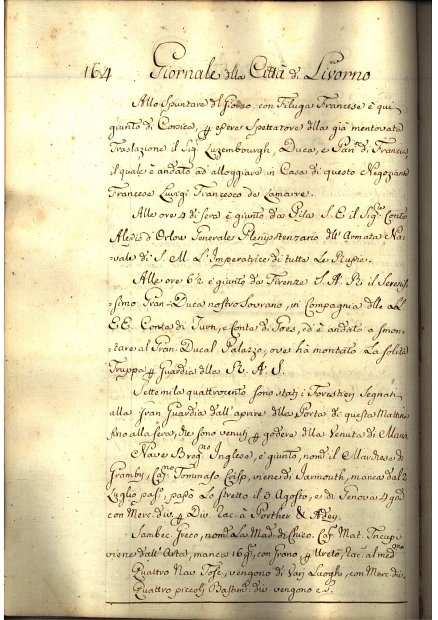 164 Giornale della Città di Livorno
Allo Spuntare del Giorno, con Filuga Francese è qui
giunto di Corsica, p essere Spettatore della già mentovata
Traslazione il Sigr Luzembourgh, Duca, e Pari di Francia,
il quale è andato ad alloggiare in Casa di questo Negoziante
Francese Luigi Francesco de Lamarre.
Alle ore 9 di sera è giunto da Pisa S. E. il Sigr Conte
Alexis d'Orlow Generale Plenipotenziario dell'Armata Na=
vale di S. M. L'Imperatrice di tutte Le Russie.
Alle ore 6½ è giunto da Firenze S. A. R. il Sereniss
=simo Gran-Duca nostro Sovrano, in Compagnia delle LL
EE. Conte di Turn, e Conte di Goes, ed è andato a smon
=tare al Gran-Ducal Palazzo, ove há montato La solita
Truppa p Guardia della R. A. S.
Sette mila quattrocento sono stati i Forestieri Segnati
alla Gran Guardia dall'aprire della Porta di questa Mattina
fino alla sera, che sono venuti p godere della Venuta di
Nave Inglese, è giunto, nom il Mardiese di
Gramby, Cap.no Tommaso Crisp, viene di Jarmouth, manca dal 2
Luglio pas, passò Lo stretto il 5 Agosto, e di Genova 4 gni
con Merc. div. p Div. Rac. à Porther &
Sambec. Greco, nom La Mad. di Cap. Mat.
viene dall'Arta, manca 16 g, con Grano, p Rac. al med.mo
Quattro Nav. Tosc. vengono di Varj Luoghi, con Merc. div.
Quattro piccoli Bastim. div. vengono